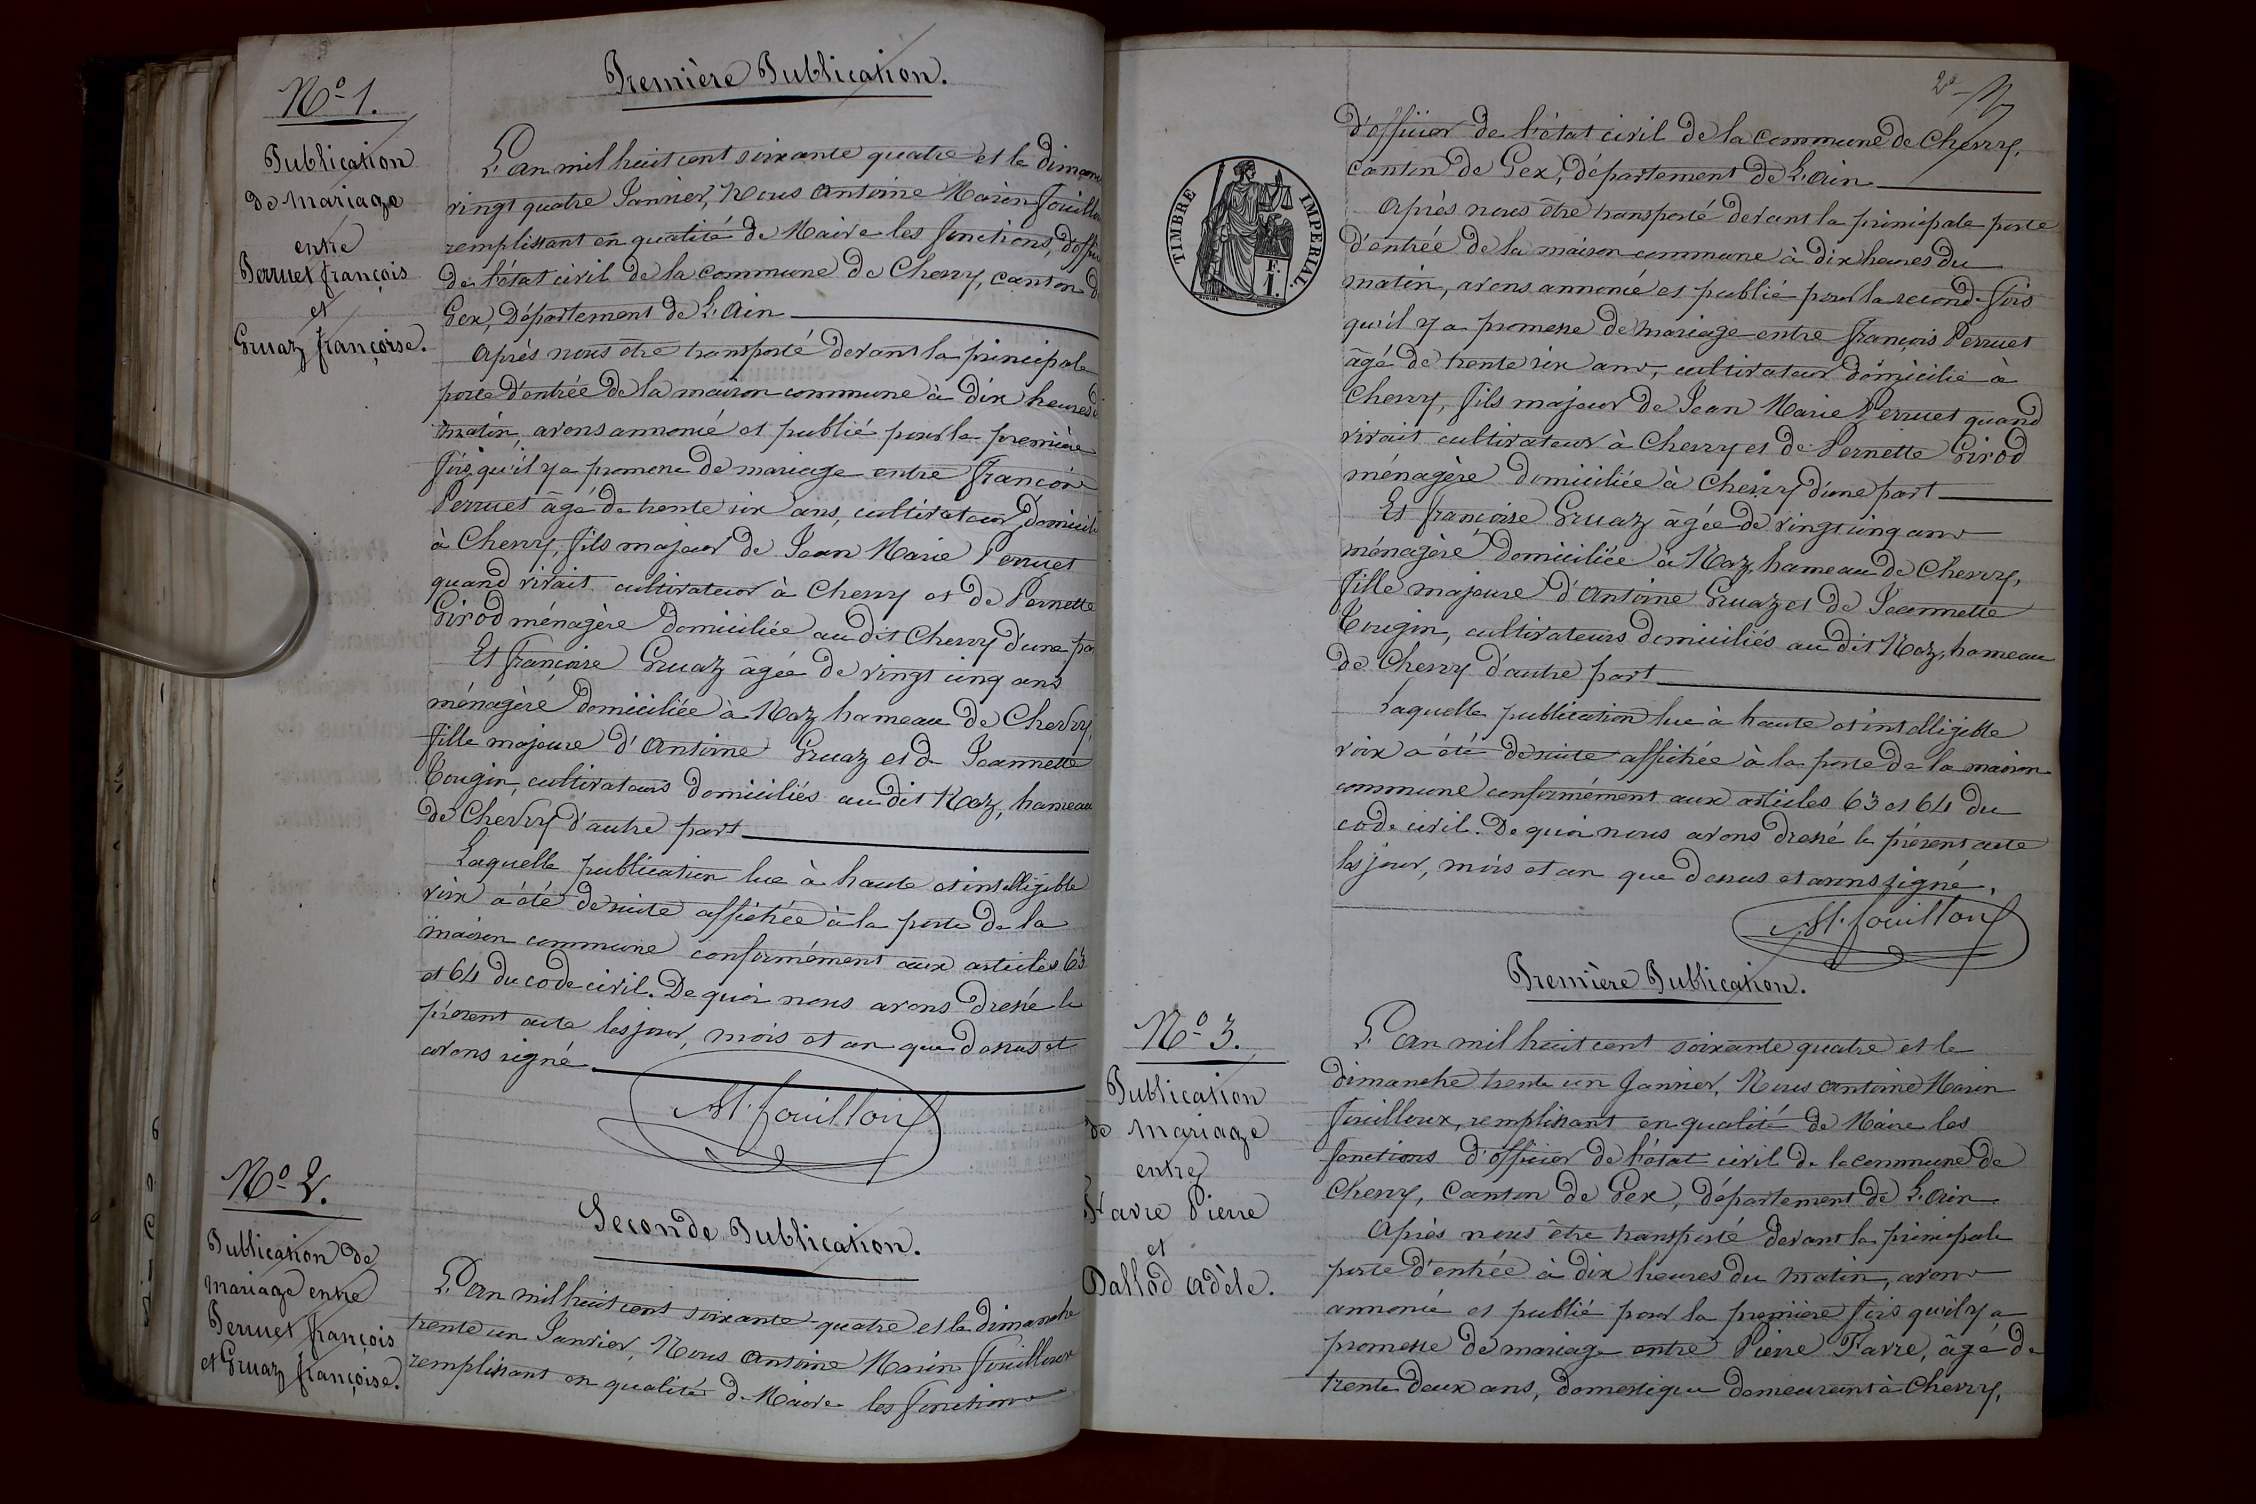 Nº 1.
Publication
de mariage
entre
Perruet françois
et
Gruaz françoise.
Première Publication.
L'an mil huit cent soixante quatre et le diman
vingt quatre Janvier, Nous Antoine Marin Fouillou
remplissant en qualité de Maire les fonctions d'offi
de l'état civil de la commune de Chevry, canton d
Gex, Département de L'ain
Après nous être transporté devant la principale
porte d'entrée de la maison commune à dix heures d
matin, avons annoncé et publié pour la première
fois qu'il y a promesse de mariage entre François
Perruet âgé de trente six ans, cultivateur, domicil
à Chevry, fils majeur de Jean Marie Perruet
quand vivait cultivateur à Chevry et de Pernette
Girod ménagère domiciliée au dit Chevry d'une pa
Et françoise Gruaz âgée de vingt cinq ans
ménagère domiciliée à Naz hameau de Chevry,
fille majeure d'Antoine Gruaz et de Jeannette
Tougin, cultivateurs domiciliés au dit Naz, hameau
de Chevry d'autre part
Laquelle publication lue à haute et intelligible
voix a été de suite affichée à la porte de la
maison commune conformément aux articles 63
et 64 du code civil. De quoi nous avons dressé le
présent acte les jour, mois et an que dessus et
avons signé
AM. fouilloux
Nº 2.
Publication de
mariage entre
Perruet françois
et Gruaz françoise.
Seconde Publication.
L'an mil huit cent soixante quatre et le dimanche
trente un Janvier, Nous Antoine Marin Fouilloux
remplissant en qualité de Maire les fonctions
2e
TIMBRE IMPERIAL.
d'officier de l'état civil de la commune de Chevry,
canton de Gex, département de L'ain
Après nous être transporté devant la principale porte
d'entrée de la maison commune à dix heures du
matin, avons annoncé et publié pour la seconde fois
qu'il y a promesse de mariage entre françois Perruet
âgé de trente six ans, cultivateur domicilié à
Chevry, fils majeur de Jean Marie Perruet quand
vivait cultivateur à Chevry et de Pernette Girod
ménagère domiciliée à Chevry d'une part
Et françoise Gruaz âgée de vingt cinq ans
ménagère domiciliée à Naz, hameau de Chevry,
fille majeure d'Antoine Gruaz et de Jeannette
Tougin, cultivateurs domiciliés au dit Naz, hameau
de Chevry d'autre part
Laquelle publication lue à haute et intelligible
voix a été de suite affichée à la porte de la maison
commune conformément aux articles 63 et 64 du
code civil. De quoi nous avons dressé le présent acte
les jour, mois et an que dessus et avons signé.
AM. fouilloux
Nº 3.
Publication
de mariage
entre
Favre Pierre
et
Dallod Adèle.
Première Publication.
L'an mil huit cent soixante quatre et le
dimanche trente un Janvier, Nous Antoine Marin
Fouilloux, remplissant en qualité de Maire les
fonctions d'officier de l'état civil de la commune de
Chevry, canton de Gex, département de L'ain.
Après nous être transporté devant la principale
porte d'entrée à dix heures du matin, avons
annoncé et publié pour la première fois qu'il y a
promesse de mariage entre Pierre Favre, âgé de
trente deux ans, domestique demeurant à Chevry,